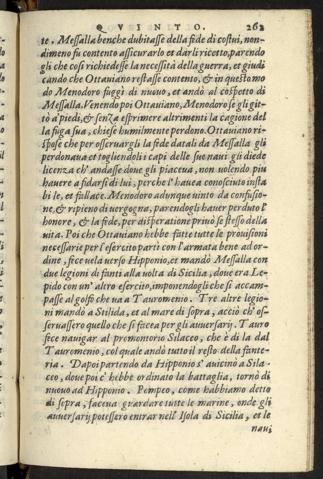 QVINTO. 262
te. Messalla benche dubitasse della fede di costui, non-
dimeno fu contento assicurarlo et darli ricetto, parendo
gli che cosi richiedesse la necessità della guerra, et giudi
cando che Ottauiano restasse contento, & in questo mo
do Menodoro fuggì di nuouo, et andò al cospetto di
Messalla. Venendo poi Ottauiano, Menodoro se gli git-
tò a' piedi, & senza esprimere altrimenti la cagione del
la fuga sua, chiese humilmente perdono. Ottauiano ri-
spose che per osseruargli la fede datali da Messalla gli
perdonaua et togliendoli i capi delle sue naui gli diede
licenza ch' andasse doue gli piaceua, non uolendo piu
hauere a fidarsi di lui, perche l' hauea conosciuto insta
bi le, et fallace. Menodoro adunque uinto da confusio-
ne, & ripieno di uergogna, parendogli hauer perduto l'
honore, & la fede, per disperatione priuò se stesso della
uita. Poi che Ottauiano hebbe fatte tutte le prouisioni
necessarie per l' esercito partì con l' armata bene ad or-
dine, fece uela uerso Hipponio, et mandò Messalla con
due legioni di fanti alla uolta di Sicilia, doue era Le-
pido con un' altro esercito, imponendogli che si accam-
passe al golfo che ua a Tauromenio. Tre altre legio-
ni mandò a Stilida, et al mare di sopra, acciò ch' os-
seruassero quello che si facea per gli auuersarij. Tauro
fece nauigar al promontorio Silaceo, che è di la dal
Tauromenio, col quale andò tutto il resto della fante-
ria. Dapoi partendo da Hipponio s' auicinò a Sila-
ceo, doue poi c' hebbe ordinato la battaglia, tornò di
nuouo ad Hipponio. Pompeo, come habbiamo detto
di sopra, faceua guardare tutte le marine, onde gli
auuersarij potessero entrar nell' Isola di Sicilia, et le
naui